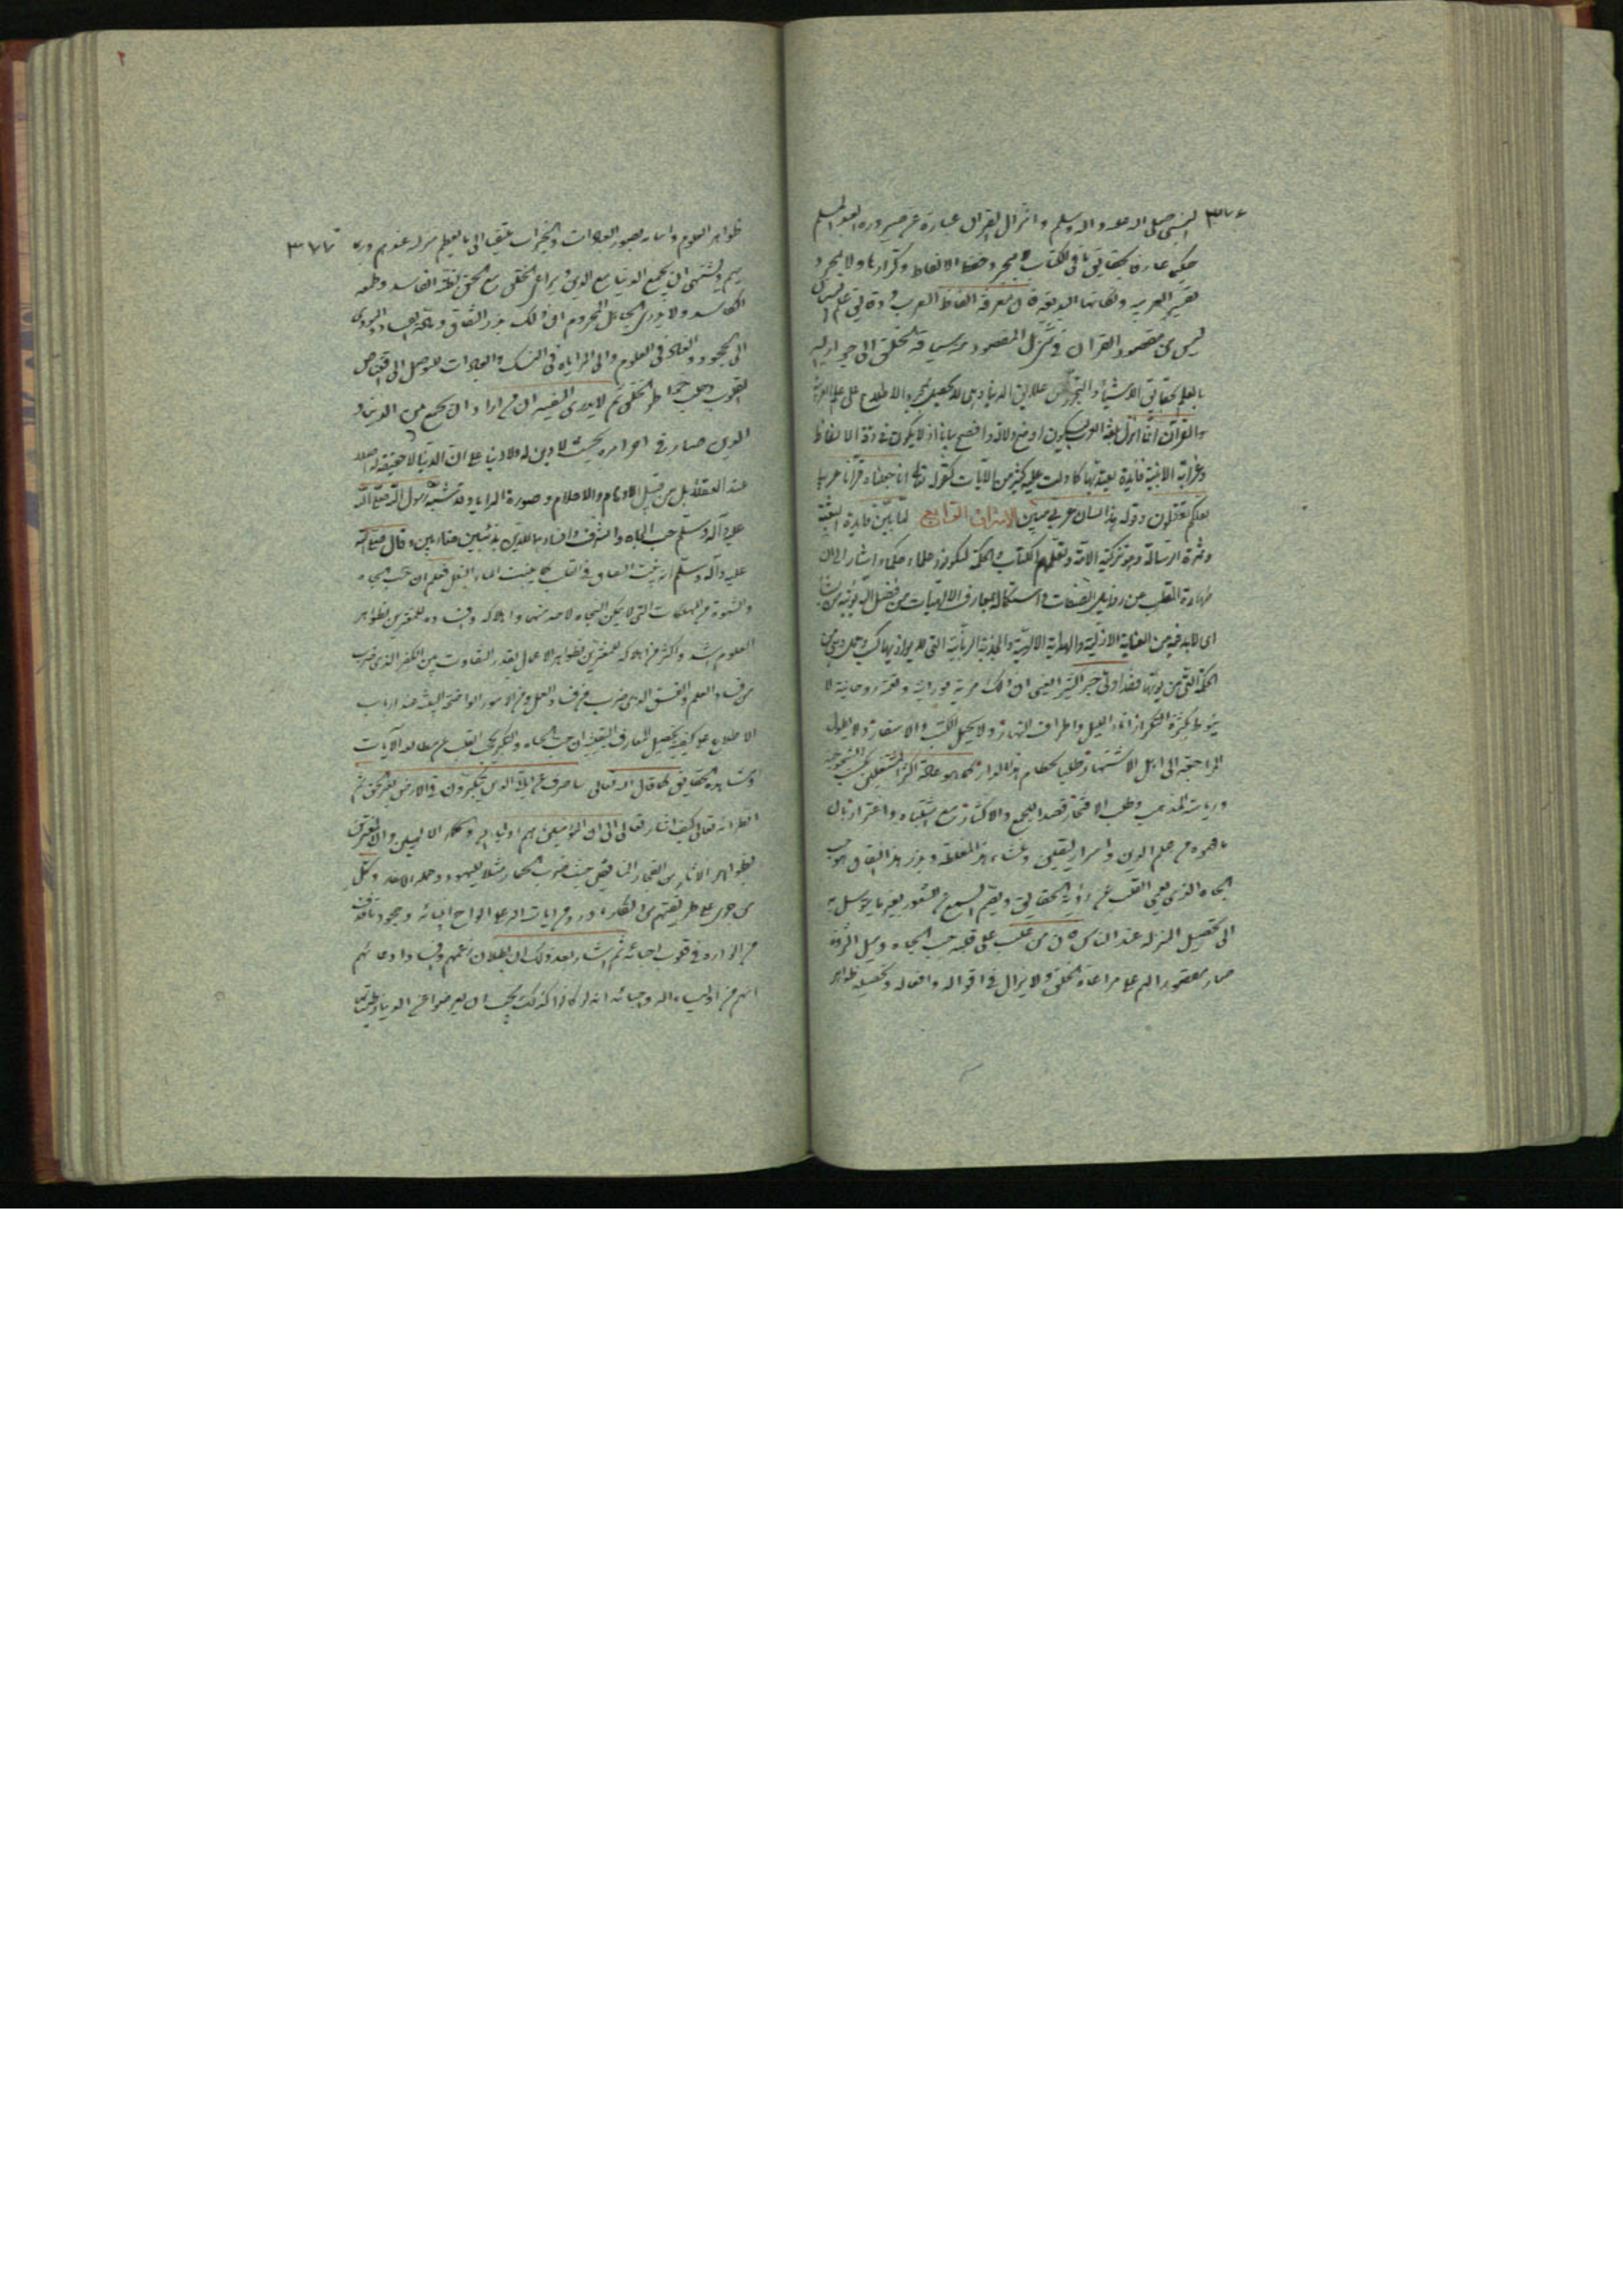 ٣٧٦
النبي صلى الله عليه واله وسلم وانزال القرآن عبارة عن صيرورة العبد المسلم
حكيما عارفا بحقايق ما في الكتاب لا بمجرد حفظ الالفاظ وتكرارها ولا بمجرد
تفسير العربية ونكاتها البديعة فان معرفة الفاظ العرب ودقايق علم اللسان
ليس من مقصود القرآن في شيء بل المقصود منه سياقة الخلق الى جوار الله
بالعلم بحقايق الاشياء والتجرد عن علايق الدنيا وهي لا تحصل بمجرد الاطلاع على علم العربية
والقرآن انما انزل بلغة العرب ليكون اوضح دلالة وافصح بيانا اذ لا يكون في دقة الالفاظ
وغرابة الابنية فايدة يعتد بها كما دلت عليه كثير من الآيات كقوله تعالى انا جعلناه قرآنا عربيا
لعلكم تعقلون وقوله هذا لسان عربي مبين الاشراق الرابع لما بين فايدة البعثة
وثمرة الرسالة وهو تزكية الامة وتعلمهم الكتاب والحكمة ليكونوا علماء حكماء اشار الى ان
طهارة القلب عن رذايل الصفات واستكماله بمعارف الالهيات من فضل الله يؤتيه من يشاء
اى لابد فيه من العناية الازلية والهداية الالهية والجذبة الربانية التي لا يوازيها كسب وعمل وهي من
الحكمة التي من يؤتها فقد اوتي خير كثيرا يعني ان ذلك مزية نورانية ونعمة روحانية لا
ينوط بكثرة التكرار اناء الليل واطراف النهار ولا بحمل الكتب والاسفار ولا بطول
المراجعة الى اهل الاشتهار طلبا لحطام هذا الدار كما هو عادة اكثر المشتغلين بكسب الشيخوخة
ورياسة المذهب وطلب الافتخار قصدا للجمع والاكثار مع اشتباه واغترار بان
ما فهموه من علم الدين واسرار اليقين ومنشاء هذا المغلطة وبذر هذا النفاق هو حب
الجاه الذي يعمي القلب عن رؤية الحقايق ويصم السمع عن الشعور بغير ما يتوسل به
الى تحصيل المنزلة عند الناس فان من غلب على قلبه حب الجاه وميل الثروة
صار مقصور الهم على مراعاة الخلق ولا يزال في اقواله وافعاله وتحصيله ظواهر
٣٧٧
ظواهر العلوم واتيانه بصور العبادات والخيرات ملتفتا الى ما يعظم منزلته عندهم
ويشتهي ان يجمع الدنيا مع الدين ويراعي الخلق مع الحق لظنه الفاسد وطمعه
الكاسد ولا يدري الجاهل المحروم ان ذلك بذر النفاق ومادة الفساد المؤدى
الى الجحود والعناد في العلوم والى المراياة في النسك والعبادات للتوصل الى اقتناص
القلوب وجلب خواطر الخلق ثم لا يدرى السفيه ان من اراد ان يجمع بين الدين و
الدنيا صار في اخر امره بحيث لا دين له ولا دنيا على ان الدنيا لا حقيقة له
عند العقلاء بل من قبيل الاوهام والاحلام وصورة المرايا وقد شبه رسول الله صلى الله
عليه وآله وسلم حب الجاه والشرف وافسادهما للدين بذئبين ضاريين وقال صلى الله
عليه وآله وسلم انه ينبت النفاق في القلب كما ينبت الماء البقل فعلم ان حب الجاه
والشهوة من المهلكات التي لا يمكن النجاة لاحد منها واهلاكه وافساده للمغترين بظواهر
العلوم اشد واكثر من اهلاكه للمغترين بظواهر الاعمال بقدر التفاوت بين الكفر الذي ضرب
من فساد العلم والفسق الذي ضرب من فساد العمل ومن الامور الواضحة البينة عند ارباب
الاطلاع على كيفية تحصيل المعارف اليقينية ان حب الجاه والتكبر يحجب القلب عن مطالعة الآيات
ومشاهدة الحقايق كما قال الله تعالى ساصرف عن اياتي الذين يتكبرون في الارض بغير الحق ثم
انظر انه تعالى كيف اشار تعالى الى ان المؤمنين هم اولياء الله والحكماء الالهيين وان المغترين
بظواهر الآثار من الفجار المنافقين حيث ضرب الحمار مثلا لليهود وحملة الاسفار وكل
من جرى على طريقتهم من انكار ما ورد من ايات الله على الواح انبيائه وجحود ما قذف
من انواره في قلوب احبائه ثم اشار بعد ذلك الى بطلان زعمهم وفساد ادعائهم
انهم من اولياء الله واحبائه انه لو كانوا كذلك يجب ان يعرضوا عن الدنيا وطيباتها